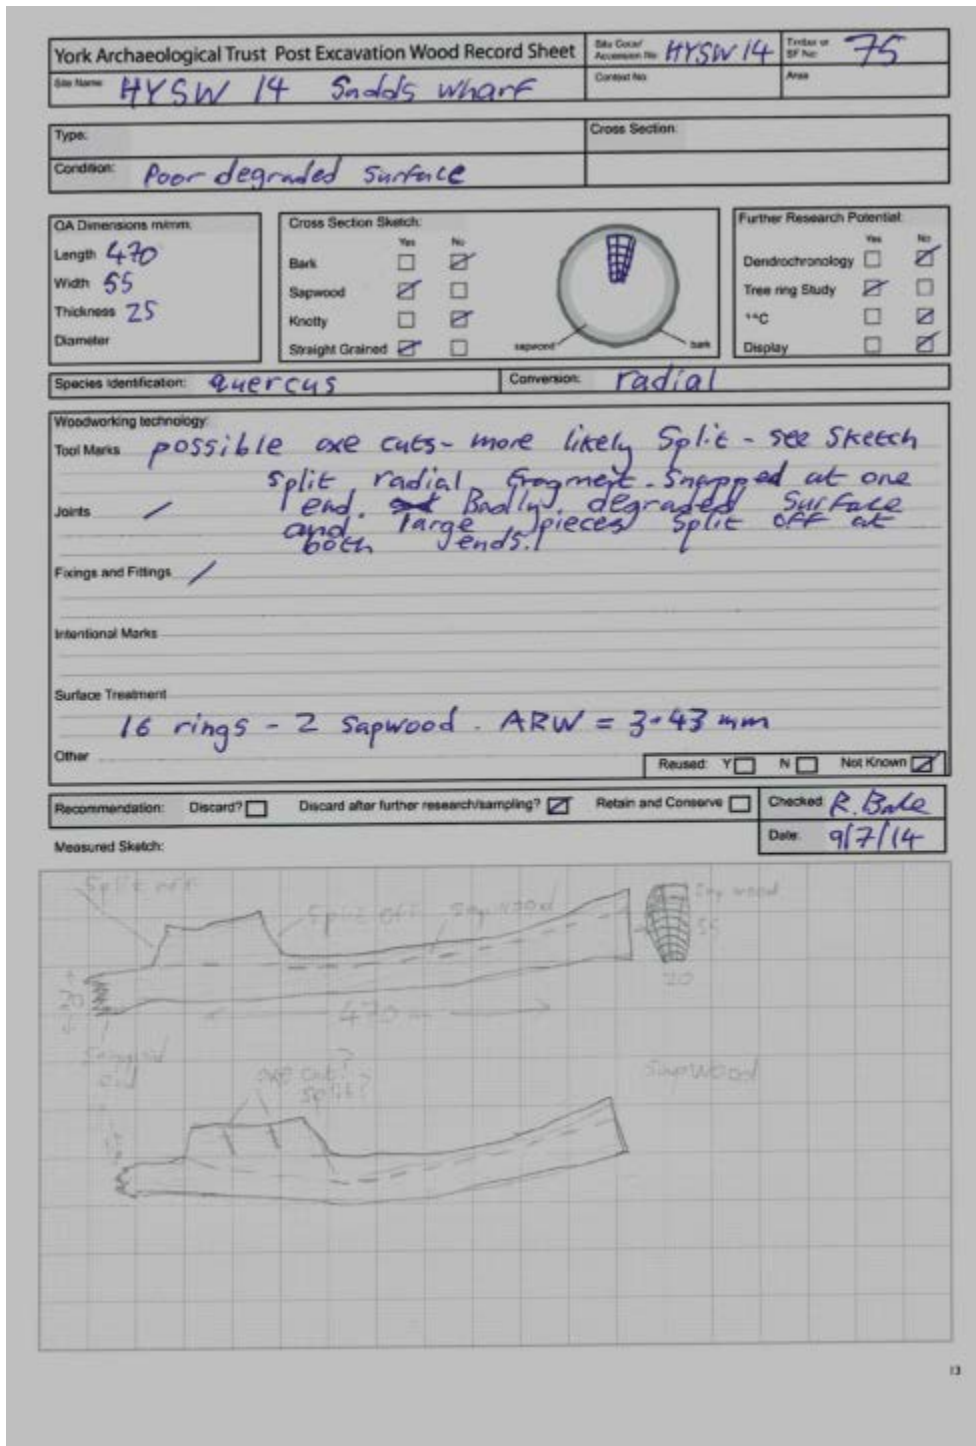 York Archaeological Trust Post Excavation Wood Record Sheet
Site Code/ Accession No: HYSW 14
Timber or SF No: 75
Site Name: HYSW 14 Sadds wharf
Context No:
Area
Type:
Cross Section:
Condition: Poor degraded surface
OA Dimensions m/mm:
Length 470
Width 55
Thickness 25
Diameter
Cross Section Sketch:
Yes No
Bark
Sapwood
Knotty
Straight Grained
sapwood
bark
Further Research Potential:
Yes No
Dendrochronology
Tree ring Study
14C
Display
Species Identification: quercus
Conversion: radial
Woodworking technology:
Tool Marks possible axe cuts - more likely Split - see Sketch
split radial fragment. Snapped at one
Joints / end. Badly degraded surface
and large pieces split off at
both ends.
Fixings and Fittings /
Intentional Marks
Surface Treatment
16 rings - 2 Sapwood. ARW = 3.43 mm
Other
Reused: Y N Not Known
Recommendation: Discard? Discard after further research/sampling? Retain and Conserve
Checked: R. Bale
Date: 9/7/14
Measured Sketch:
Split off
Split off
Sapwood
Sapwood
55
20
20
470
Snapped
end
axe cut?
split?
Sapwood
13